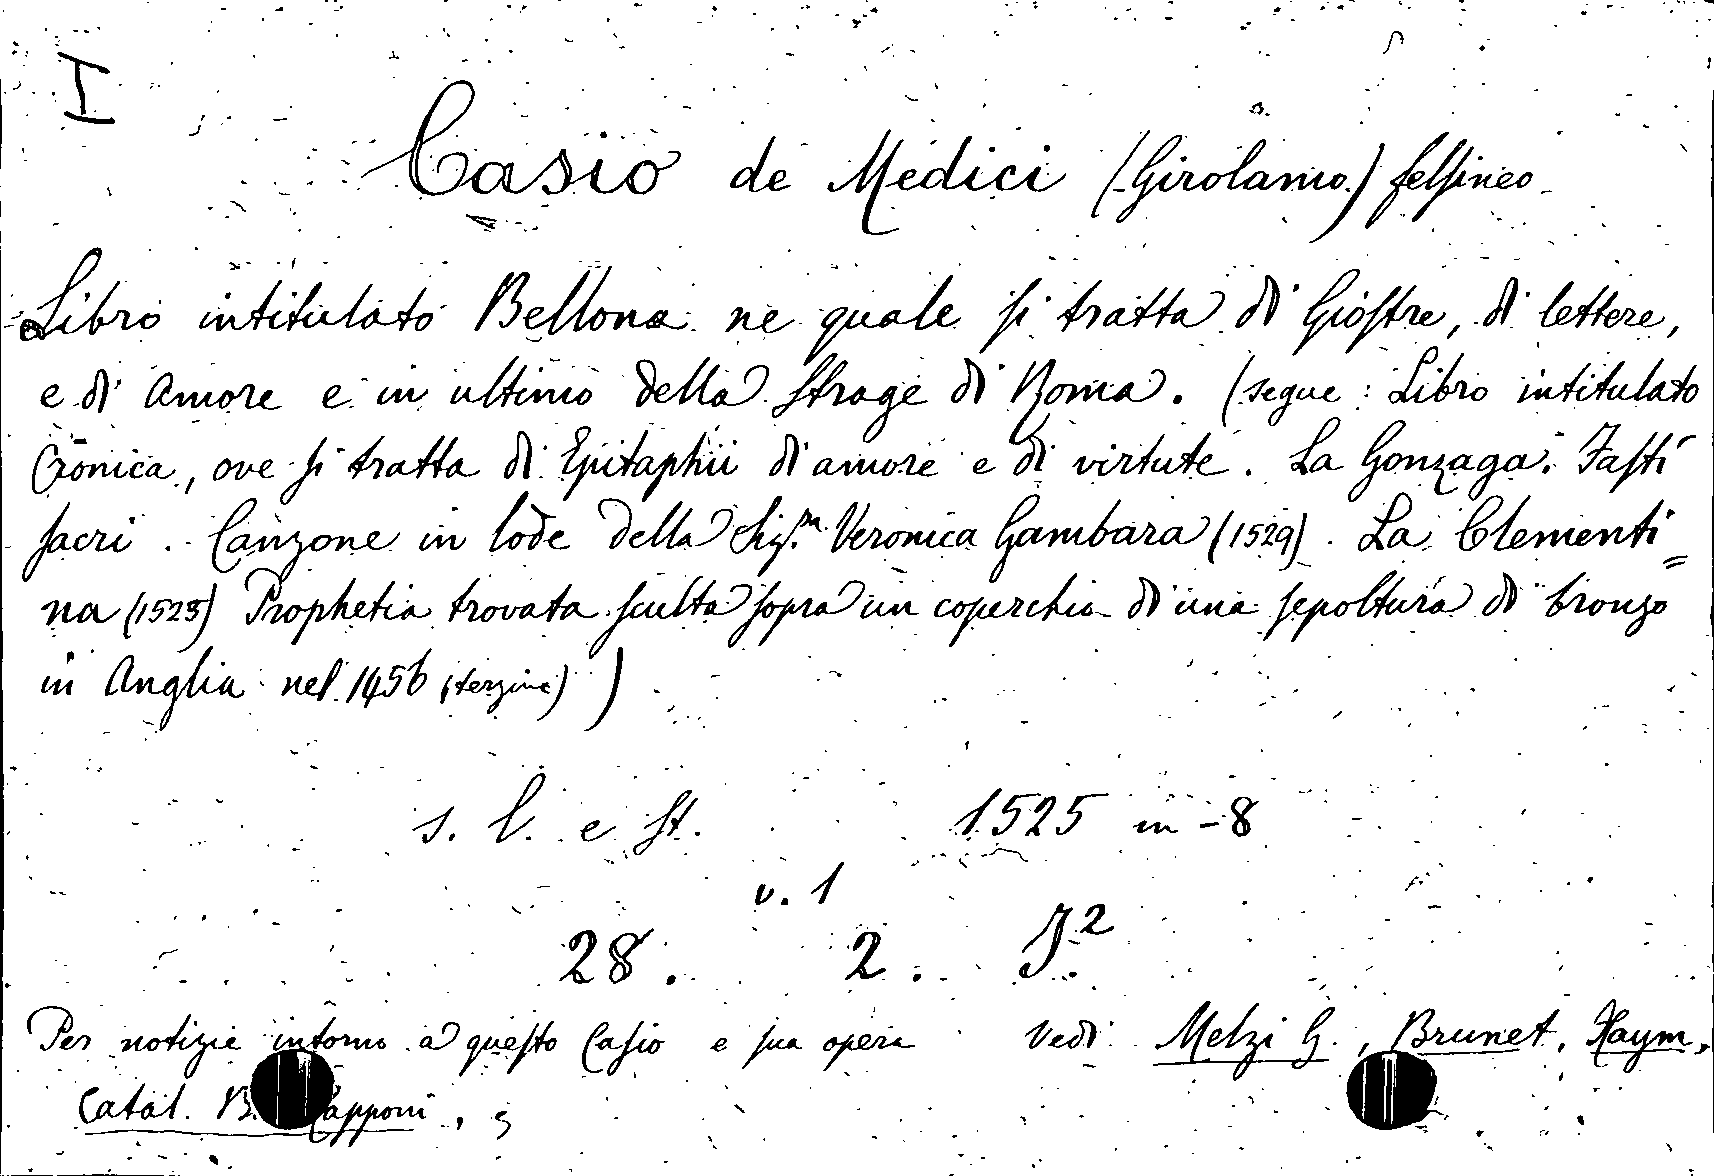 I
Casio de Medici (Girolamo) felsineo
Libro intitulato Bellona ne quale si tratta di Giostre, di lettere,
e di Amore e in ultimo della strage di Roma. (segue: Libro intitulato
Cronica, ove si tratta di Epitaphii di amore e di virtute. La Gonzaga. Fasti
sacri. Canzone in lode della Sig.ra Veronica Gambara (1529). La Clementi=
na (1523) Prophetia trovata sculta sopra un coperchio di una sepoltura di bronzo
in Anglia nel 1456 (terzine) )
s. l. e st. 1525 in-8
v. 1
28. 2. J.2
Per notizie intorno a questo Casio e sua opera vedi Melzi G., Brunet, Haym,
Catal. B. Capponi,